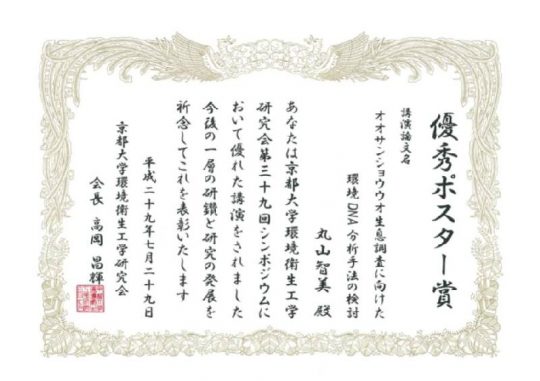 優秀ポスター賞
講演論文名
オオサンショウウオ生息調査に向けた
環境DNA分析手法の検討
丸山智美 殿
あなたは京都大学環境衛生工学
研究会第三十九回シンポジウムに
おいて優れた講演をされました
今後の一層の研鑽と研究の発展を
祈念してこれを表彰いたします
平成二十九年七月二十九日
京都大学環境衛生工学研究会
会長 高岡 昌輝